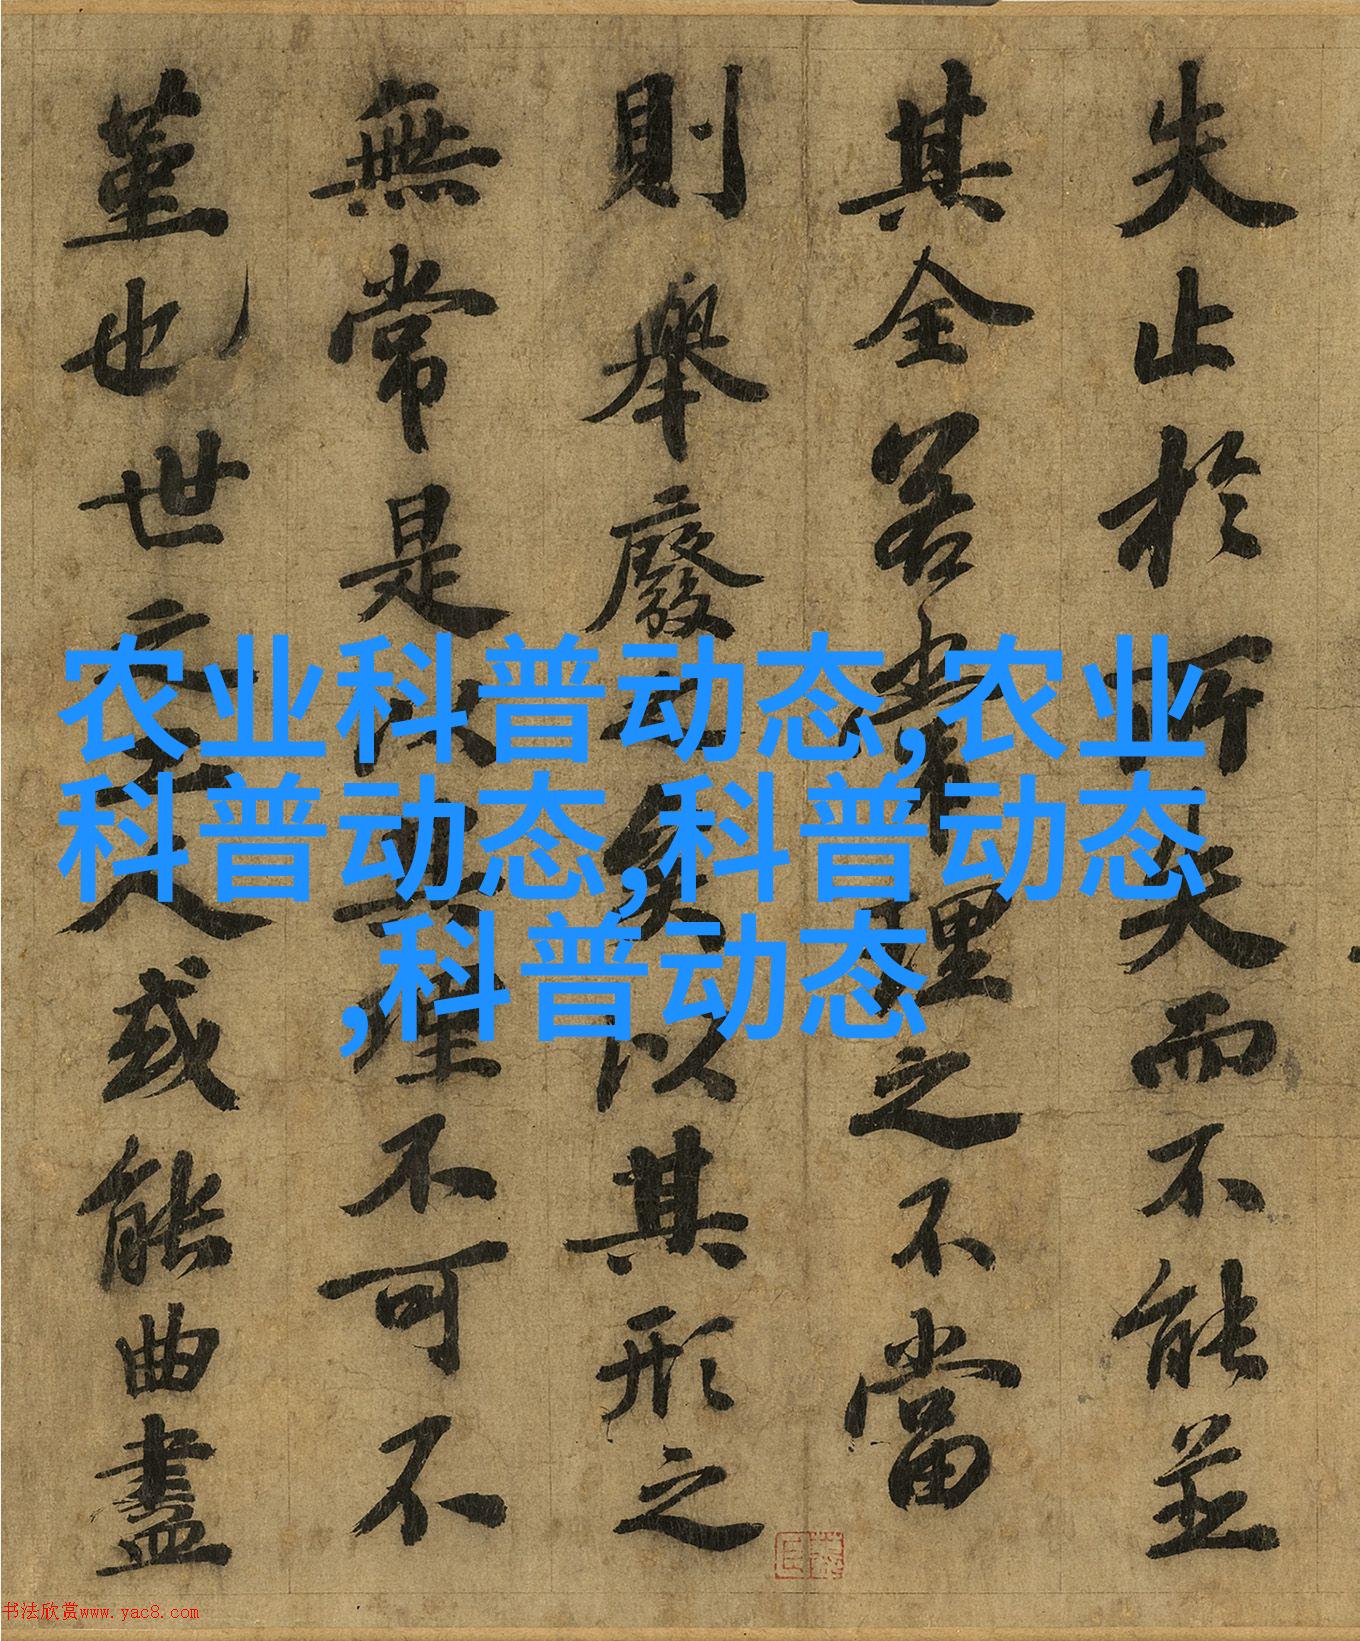 失止於所失而不能並
其全若常理之不當
則舉廢之矣以其形之
無常是以其理不可不
堇也世之工人或能曲盡
农业科普动态,农业
科普动态,科普动态
,科普动态
书法欣赏www.yac8.com